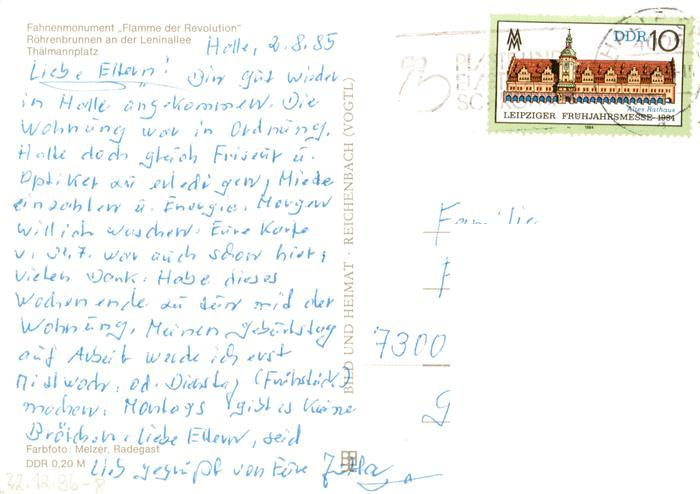 Fahnenmonument „Flamme der Revolution"
Röhrenbrunnen an der Leninallee
Thälmannplatz
Halle, 2.8.85
Liebe Eltern! Bin gut wieder
in Halle angekommen. Die
Wohnung war in Ordnung.
Hatte doch gleich Friseur u.
Optiker zu erledigen, Miete
einzahlen u. Energie. Morgen
will ich waschen. Eure Karte
v. 31.7. war auch schon hier,
vielen Dank. Habe dieses
Wochenende zu tun mit der
Wohnung. Meinen Geburtstag
auf Arbeit werde ich erst
Mittwoch, od. Dienstag (Frühstück)
machen. Montags gibt es keine
Brötchen. Liebe Eltern, seid
lieb gegrüßt von Eure Jutta
Farbfoto: Melzer, Radegast
DDR 0,20 M
BILD UND HEIMAT · REICHENBACH (VOGTL)
DDR 10
Altes Rathaus
LEIPZIGER FRÜHJAHRSMESSE · 1984
1984
Familie
F
7300
G